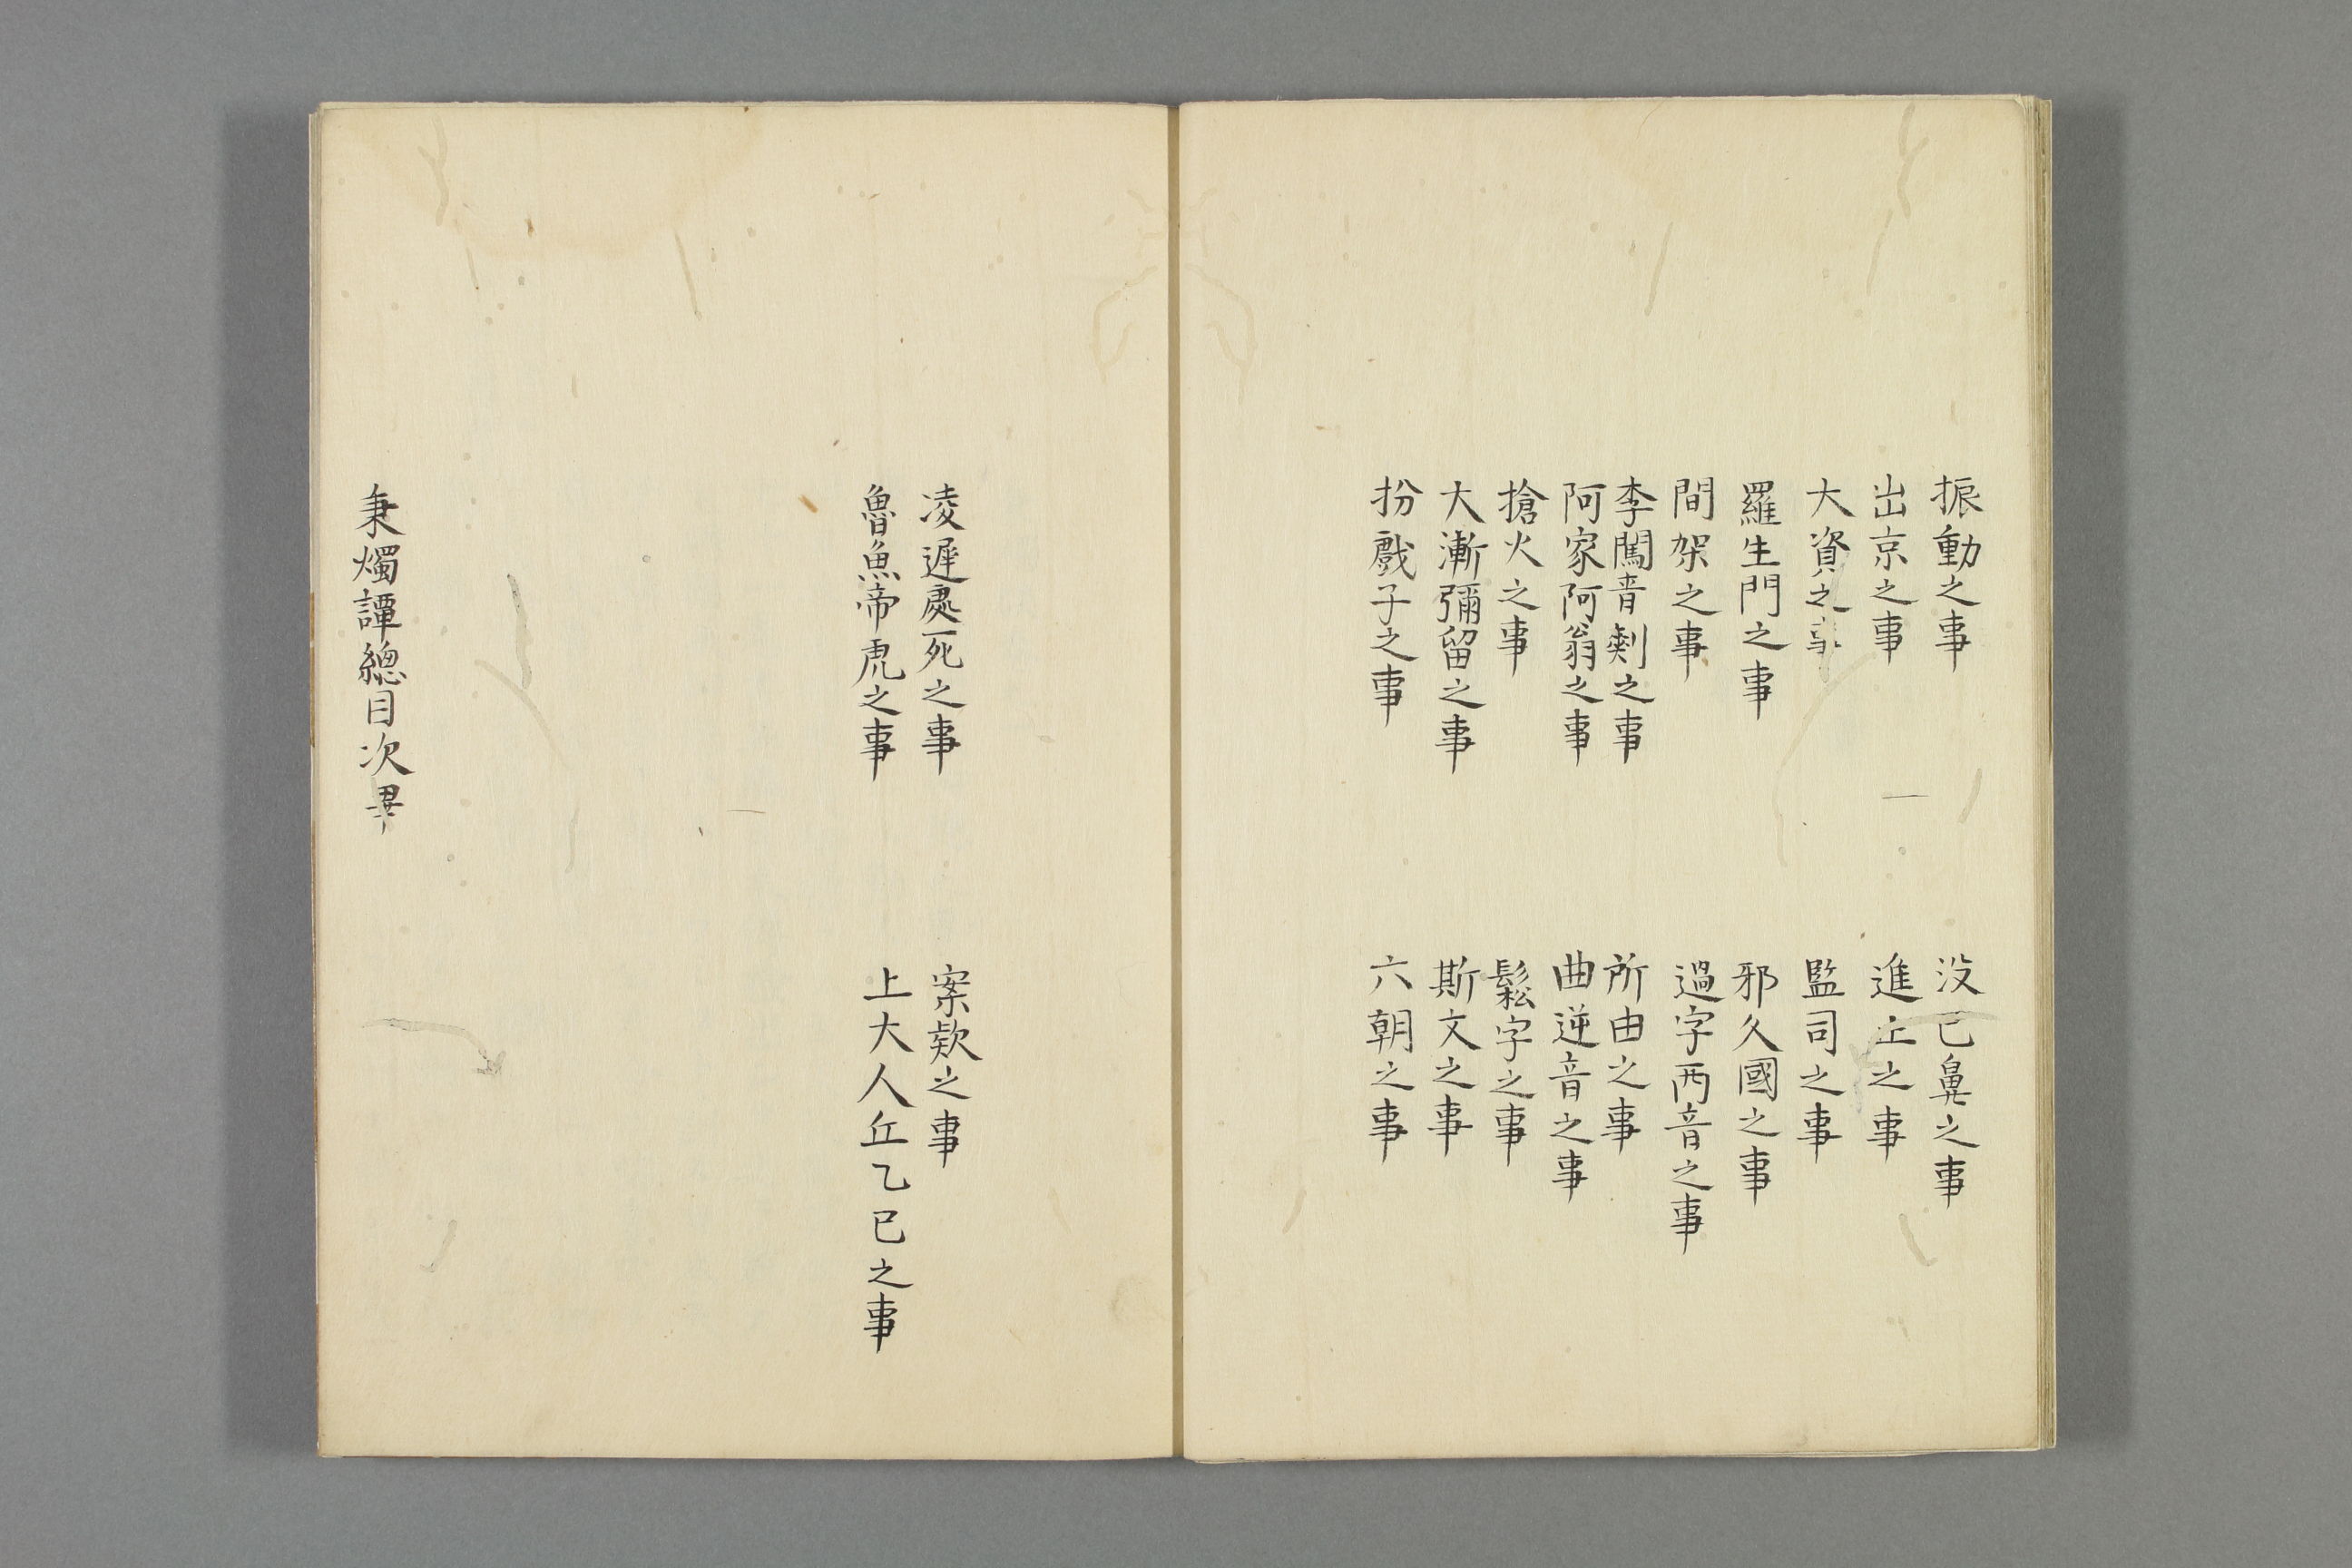 振動之事
没巴鼻之事
出京之事
進止之事
大資之事
監司之事
羅生門之事
邪久國之事
間架之事
過字両音之事
李闖音剌之事
所由之事
阿家阿翁之事
曲逆音之事
搶火之事
鬆字之事
大漸彌留之事
斯文之事
扮戲子之事
六朝之事
凌遲處死之事
案欵之事
魯魚帝虎之事
上大人丘乙已之事
秉燭譚總目次畢